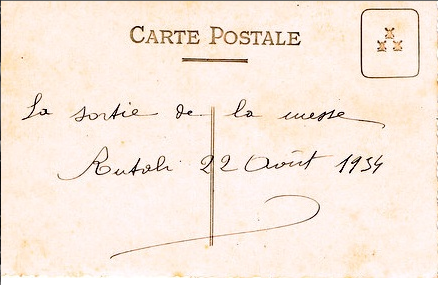 CARTE POSTALE
La sortie de la messe
Rutali 22 Août 1934